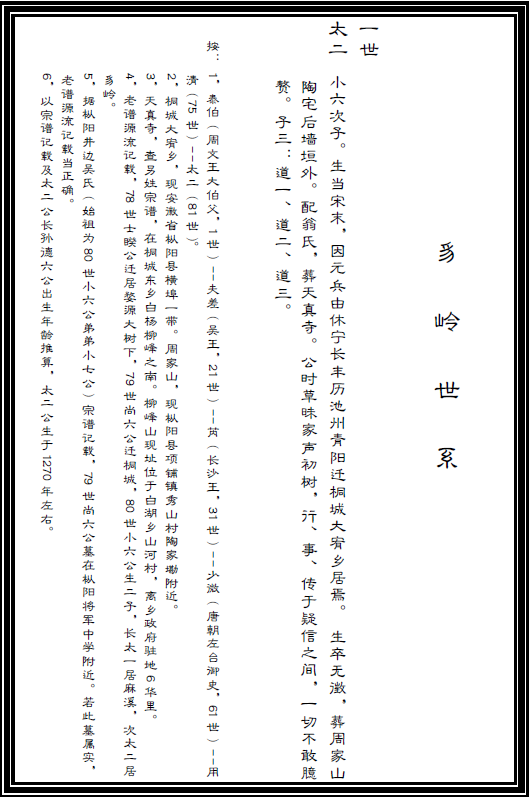 豸岭世系
一世
太二 小六次子。生当宋末，因元兵由休宁长丰历池州青阳迁桐城大宥乡居焉。 生卒无徵，葬周家山
陶宅后墙垣外。配翁氏，葬天真寺。公时草昧家声初树，行、事、传于疑信之间，一切不敢臆
赘。子三：道一、道二、道三。
按： 1，泰伯（周文王大伯父，1世）--夫差（吴王，21世）--芮（长沙王，31世）--少微（唐朝左台御史，61世）--用
清（75世）--太二（81世）。
2，桐城大宥乡，现安徽省枞阳县横埠一带。周家山，现枞阳县项铺镇秀山村陶家墈附近。
3，天真寺，查另姓宗谱，在桐城东乡白杨柳峰之南。柳峰山现址位于白湖乡山河村，离乡政府驻地6华里。
4，老谱源流记载，78世士睽公迁居婺源大树下，79世尚六公迁桐城，80世小六公生二子，长太一居麻溪，次太二居
豸岭。
5，据枞阳井边吴氏（始祖为80世小六公弟弟小七公）宗谱记载，79世尚六公墓在枞阳将军中学附近。若此墓属实，
老谱源流记载当正确。
6，以宗谱记载及太二公长孙德六公出生年龄推算，太二公生于1270年左右。